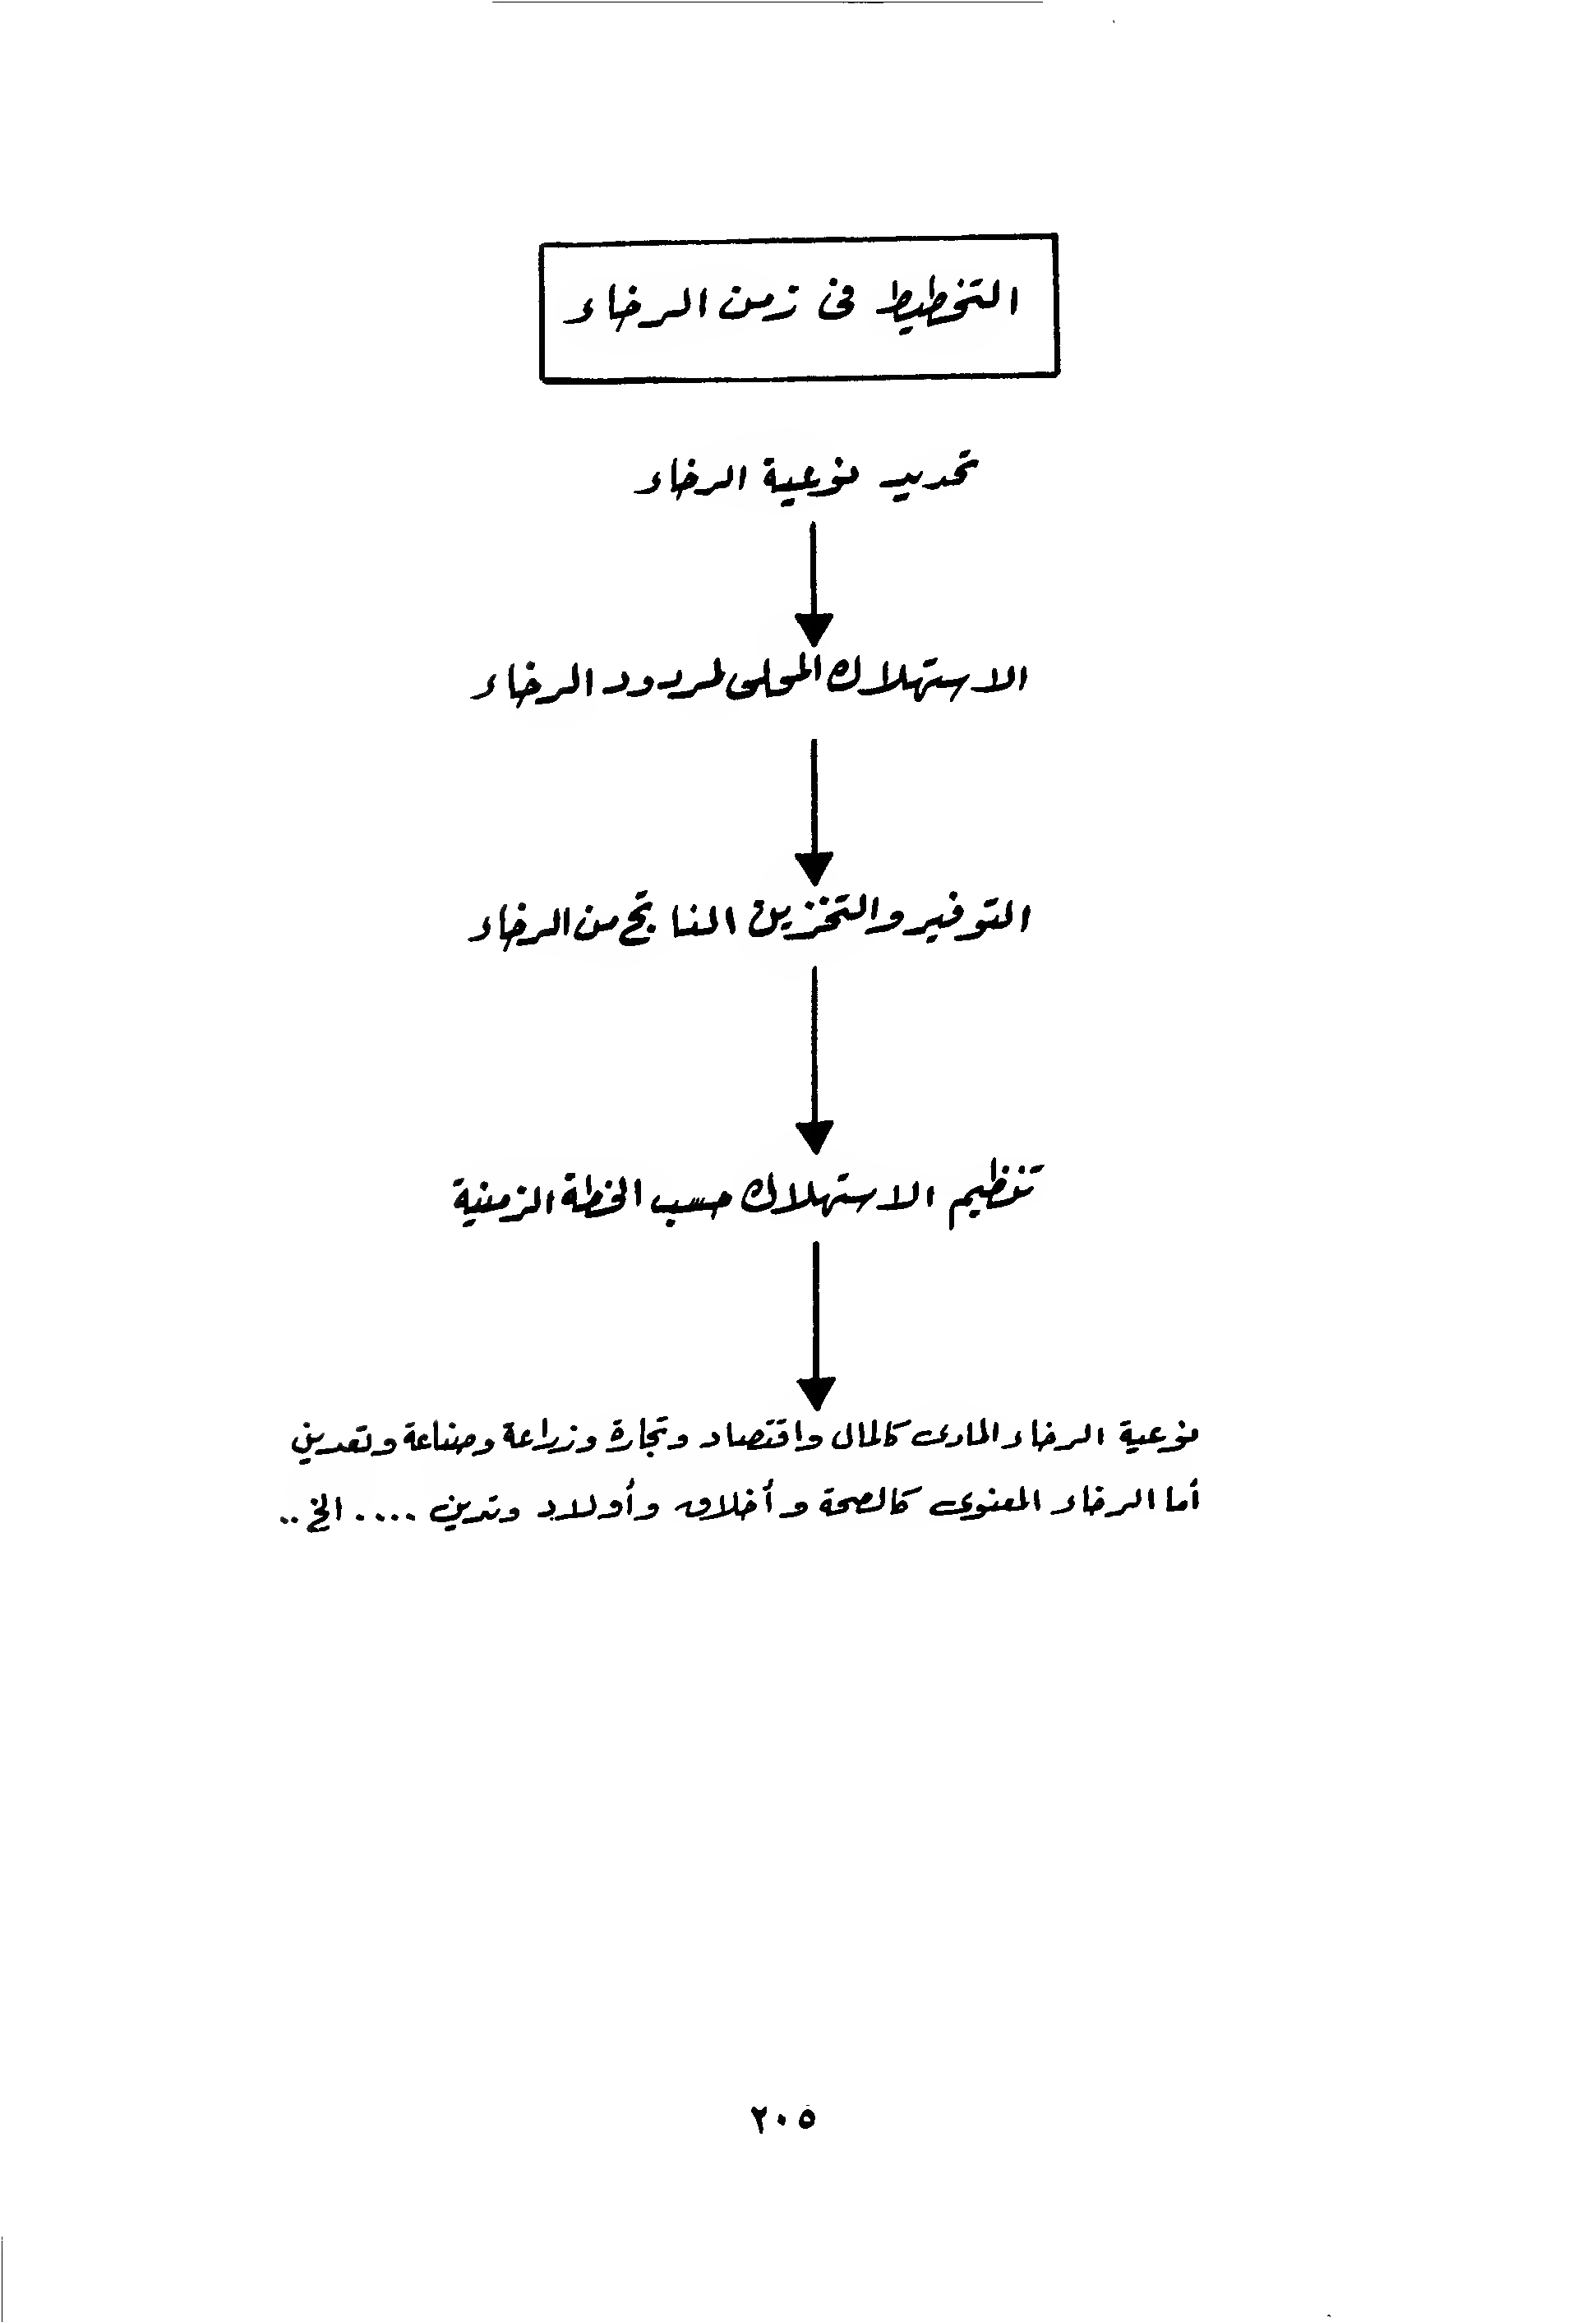 التخطيط فى زمن الرخاء
تحديد نوعية الرخاء
الاستهلاك المحلى لمردود الرخاء
التوفير والتخزين الناتج من الرخاء
تنظيم الاستهلاك حسب الخطة الزمنية
نوعية الرخاء المادى كالمال واقتصاد وتجارة وزراعة وصناعة وتعدين
أما الرخاء المعنوى كالصحة وأخلاق وأولاد وتدين .... الخ ..
٢٠٥